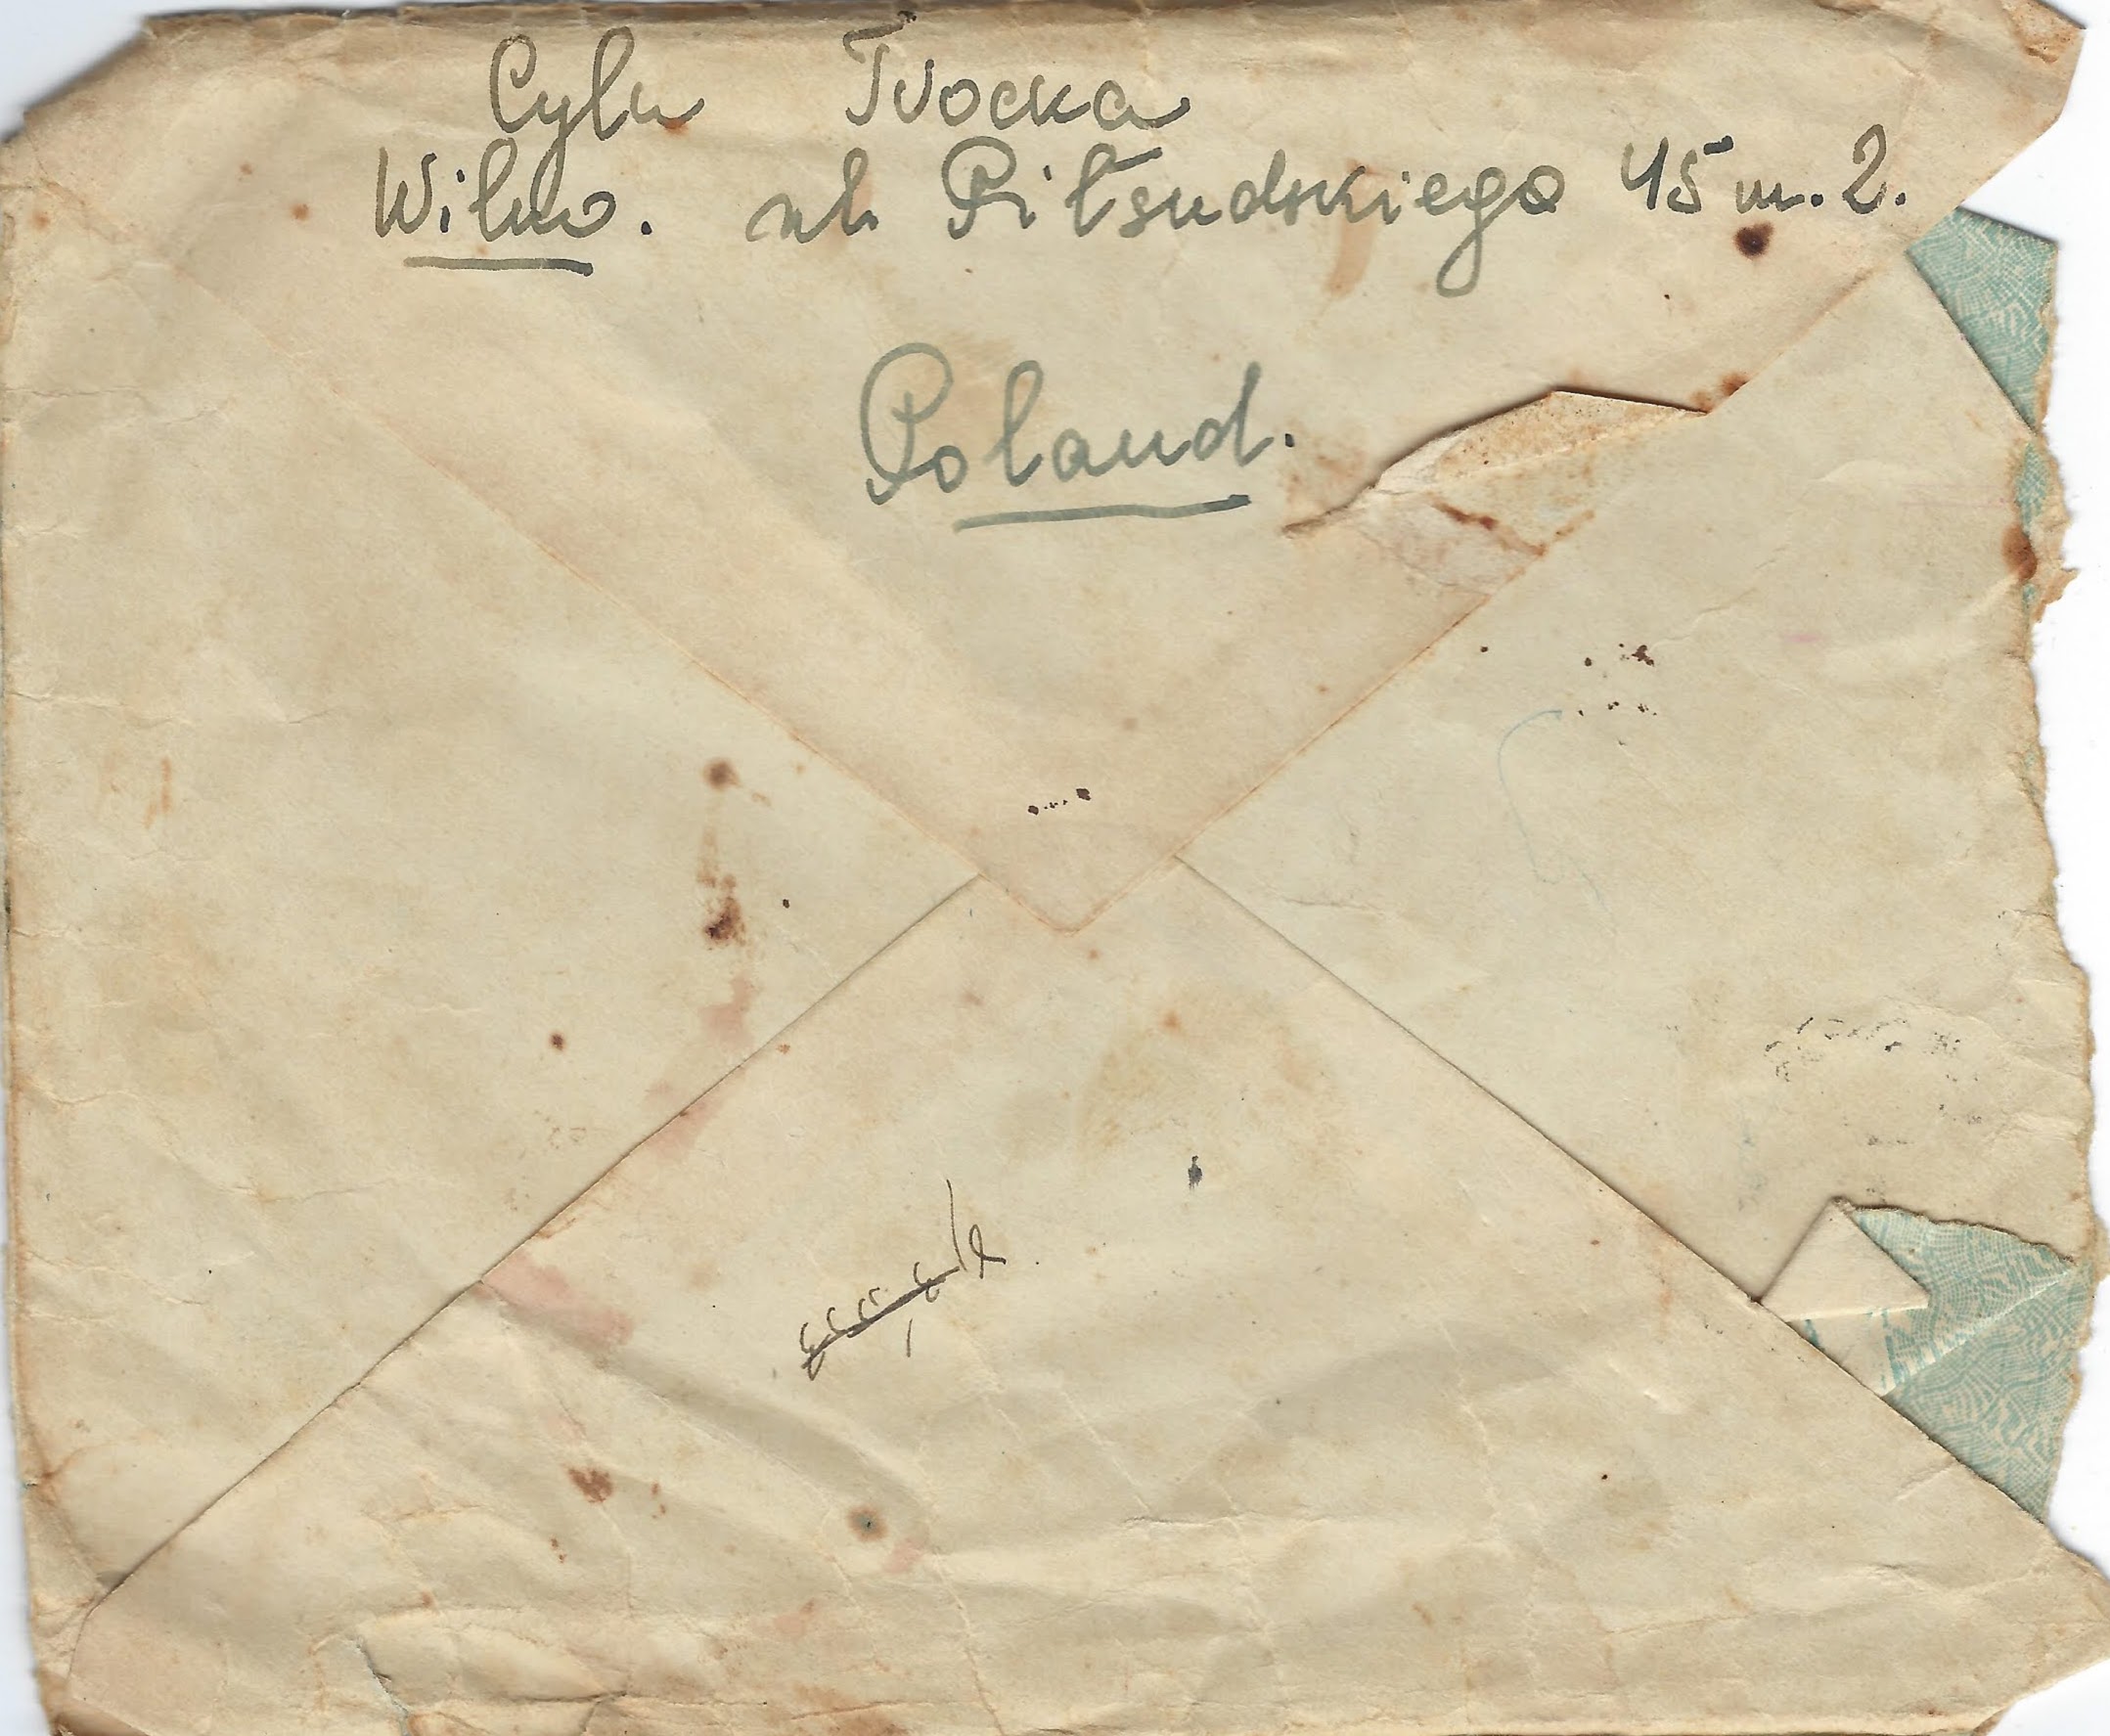 Cyla Trocka
Wilno. ul. Piłsudskiego 45 m. 2.
Poland.